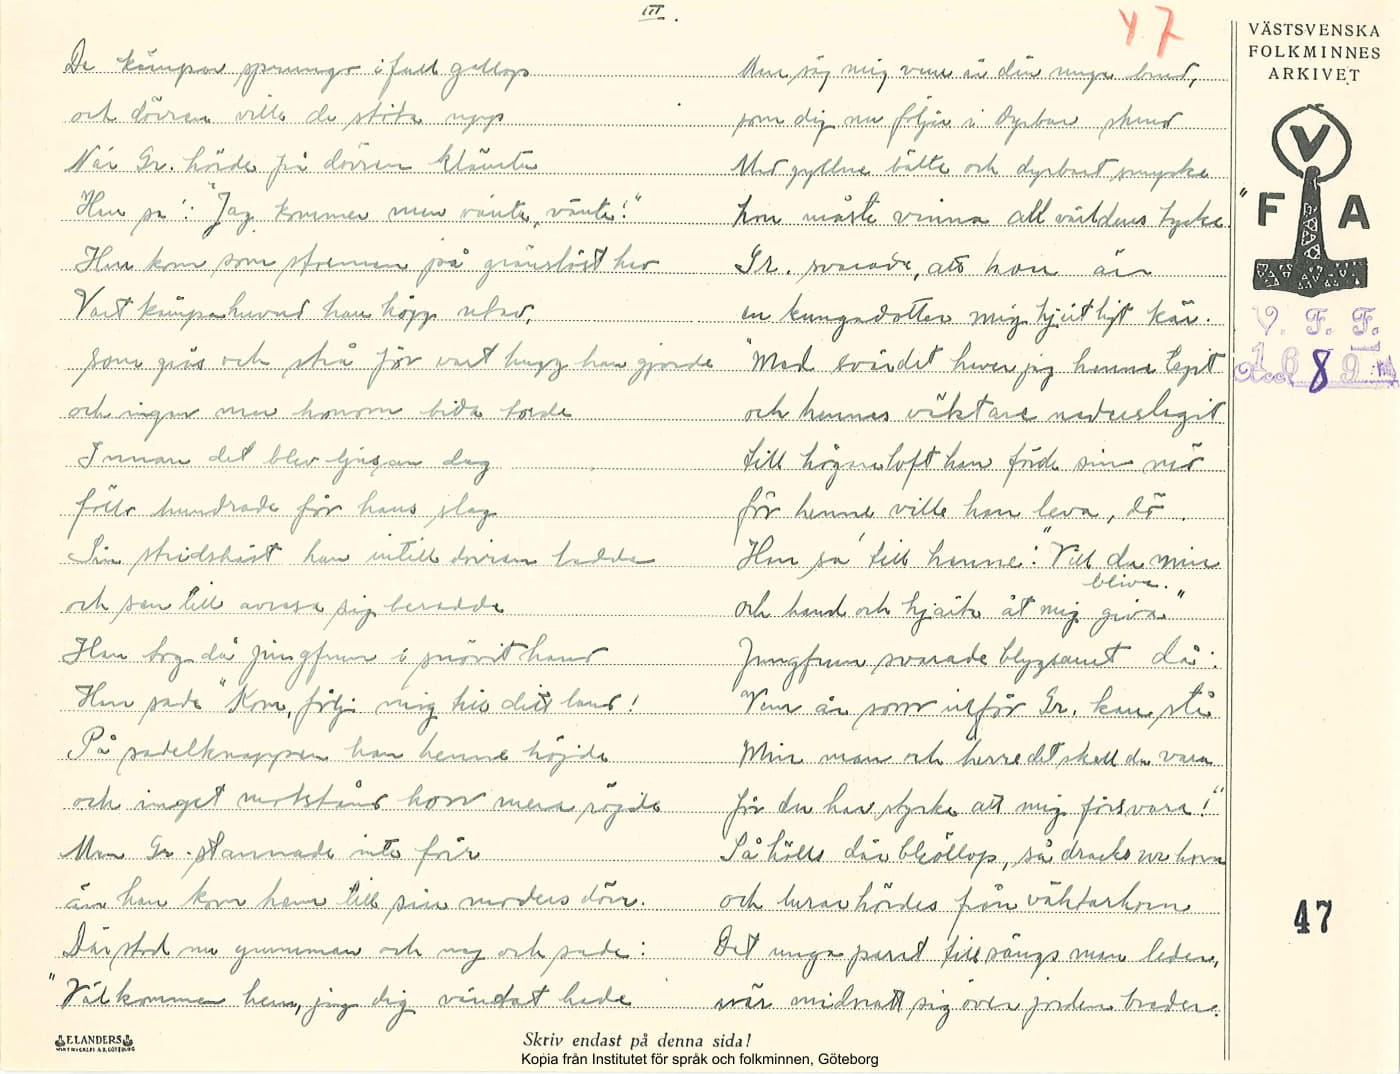 III.
47
De kämpar sprungo i full galopp
och dörren ville de stöta upp
När Gr. hörde på dörren klämta
Han sa': "Jag kommer men vänta, vänta!"
Han kom som stormen på gränslöst hav
Vart kämpahuvud han högg utav,
som gräs och strå för vart hugg han gjorde
och ingen mer honom bida torde
Innan det blev ljusan dag
föllo hundrade för hans slag
Sin stridshäst han intill dörren ledde
och sen till avresa sig beredde
Han tog då jungfrun i snövit hand
Han sade "Kom, följ mig till ditt land!
På sadelknappen han henne höjde
och inget motstånd hon mera röjde
Men Gr. stannade inte förr
än han kom hem till sin moders dörr.
Där stod nu gumman och nog och sade:
"Välkommen hem, jag dig väntat hade
Men säg mig vem är din unga brud,
som dig nu följer i dyrbar skrud
Med gyllne bälte och dyrbart smycke
hon måste vinna all världens tycke
Gr. svarade, att hon är
en kungadotter mig hjärtligt kär.
"Med svärdet haver jag henne tagit
och hennes väktare nederslagit
till högan loft han förde sin mö
för henne ville han leva, dö.
Han sa' till henne: "Vill du min
bliva.
och hand och hjärta åt mig giva"
Jungfrun svarade blygsamt då:
Vem är som utför Gr. kan stå
Min man och herre det skall du vara
för du har styrka att mig försvara!"
Så hölls där bröllop, så dracks ur horn
och lurar hördes från väktarhorn
Det unga paret till sängs man leder,
när midnatt sig över jorden breder.
VÄSTSVENSKA
FOLKMINNES
ARKIVET
V
"F A
V. F. F.
Acc. 1689
47
ELANDERS
Skriv endast på denna sida!
Kopia från Institutet för språk och folkminnen, Göteborg